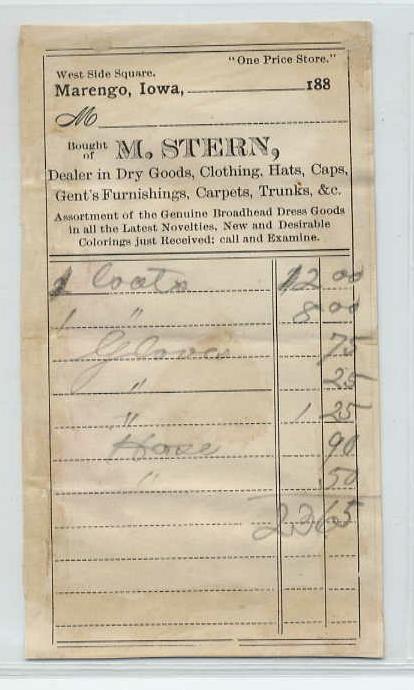 "One Price Store."
West Side Square.
Marengo, Iowa, 188
M
Bought of M. STERN,
Dealer in Dry Goods, Clothing, Hats, Caps,
Gent's Furnishings, Carpets, Trunks, &c.
Assortment of the Genuine Broadhead Dress Goods
in all the Latest Novelties. New and Desirable
Colorings just Received; call and Examine.
1 Coats 12 00
1 " 8 00
Gloves 75
" 25
" 1 25
Hose 90
" 50
23 65